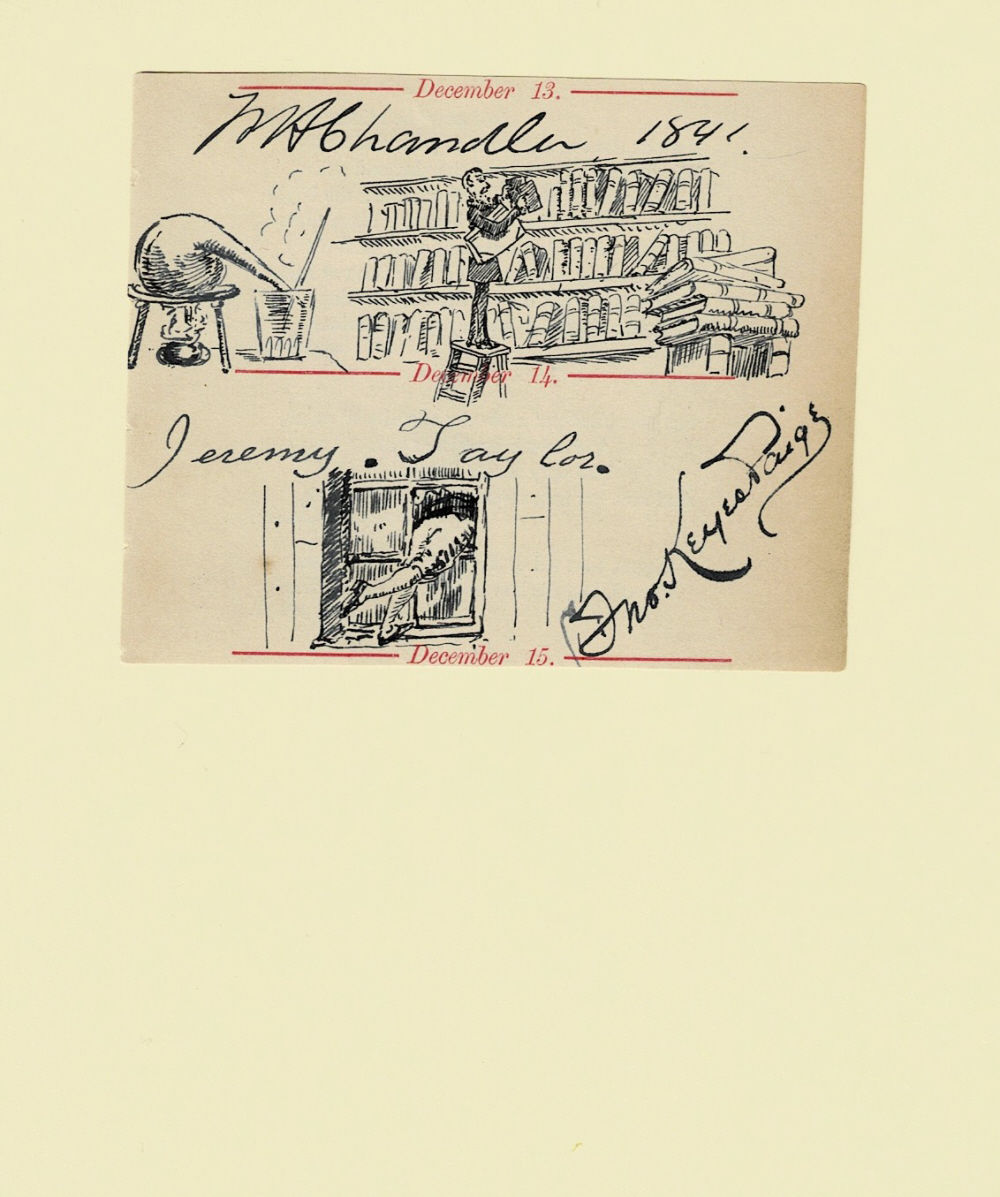 December 13.
W H Chandler 1841.
December 14.
Jeremy. Taylor.
Jno. Keyes Paige
December 15.